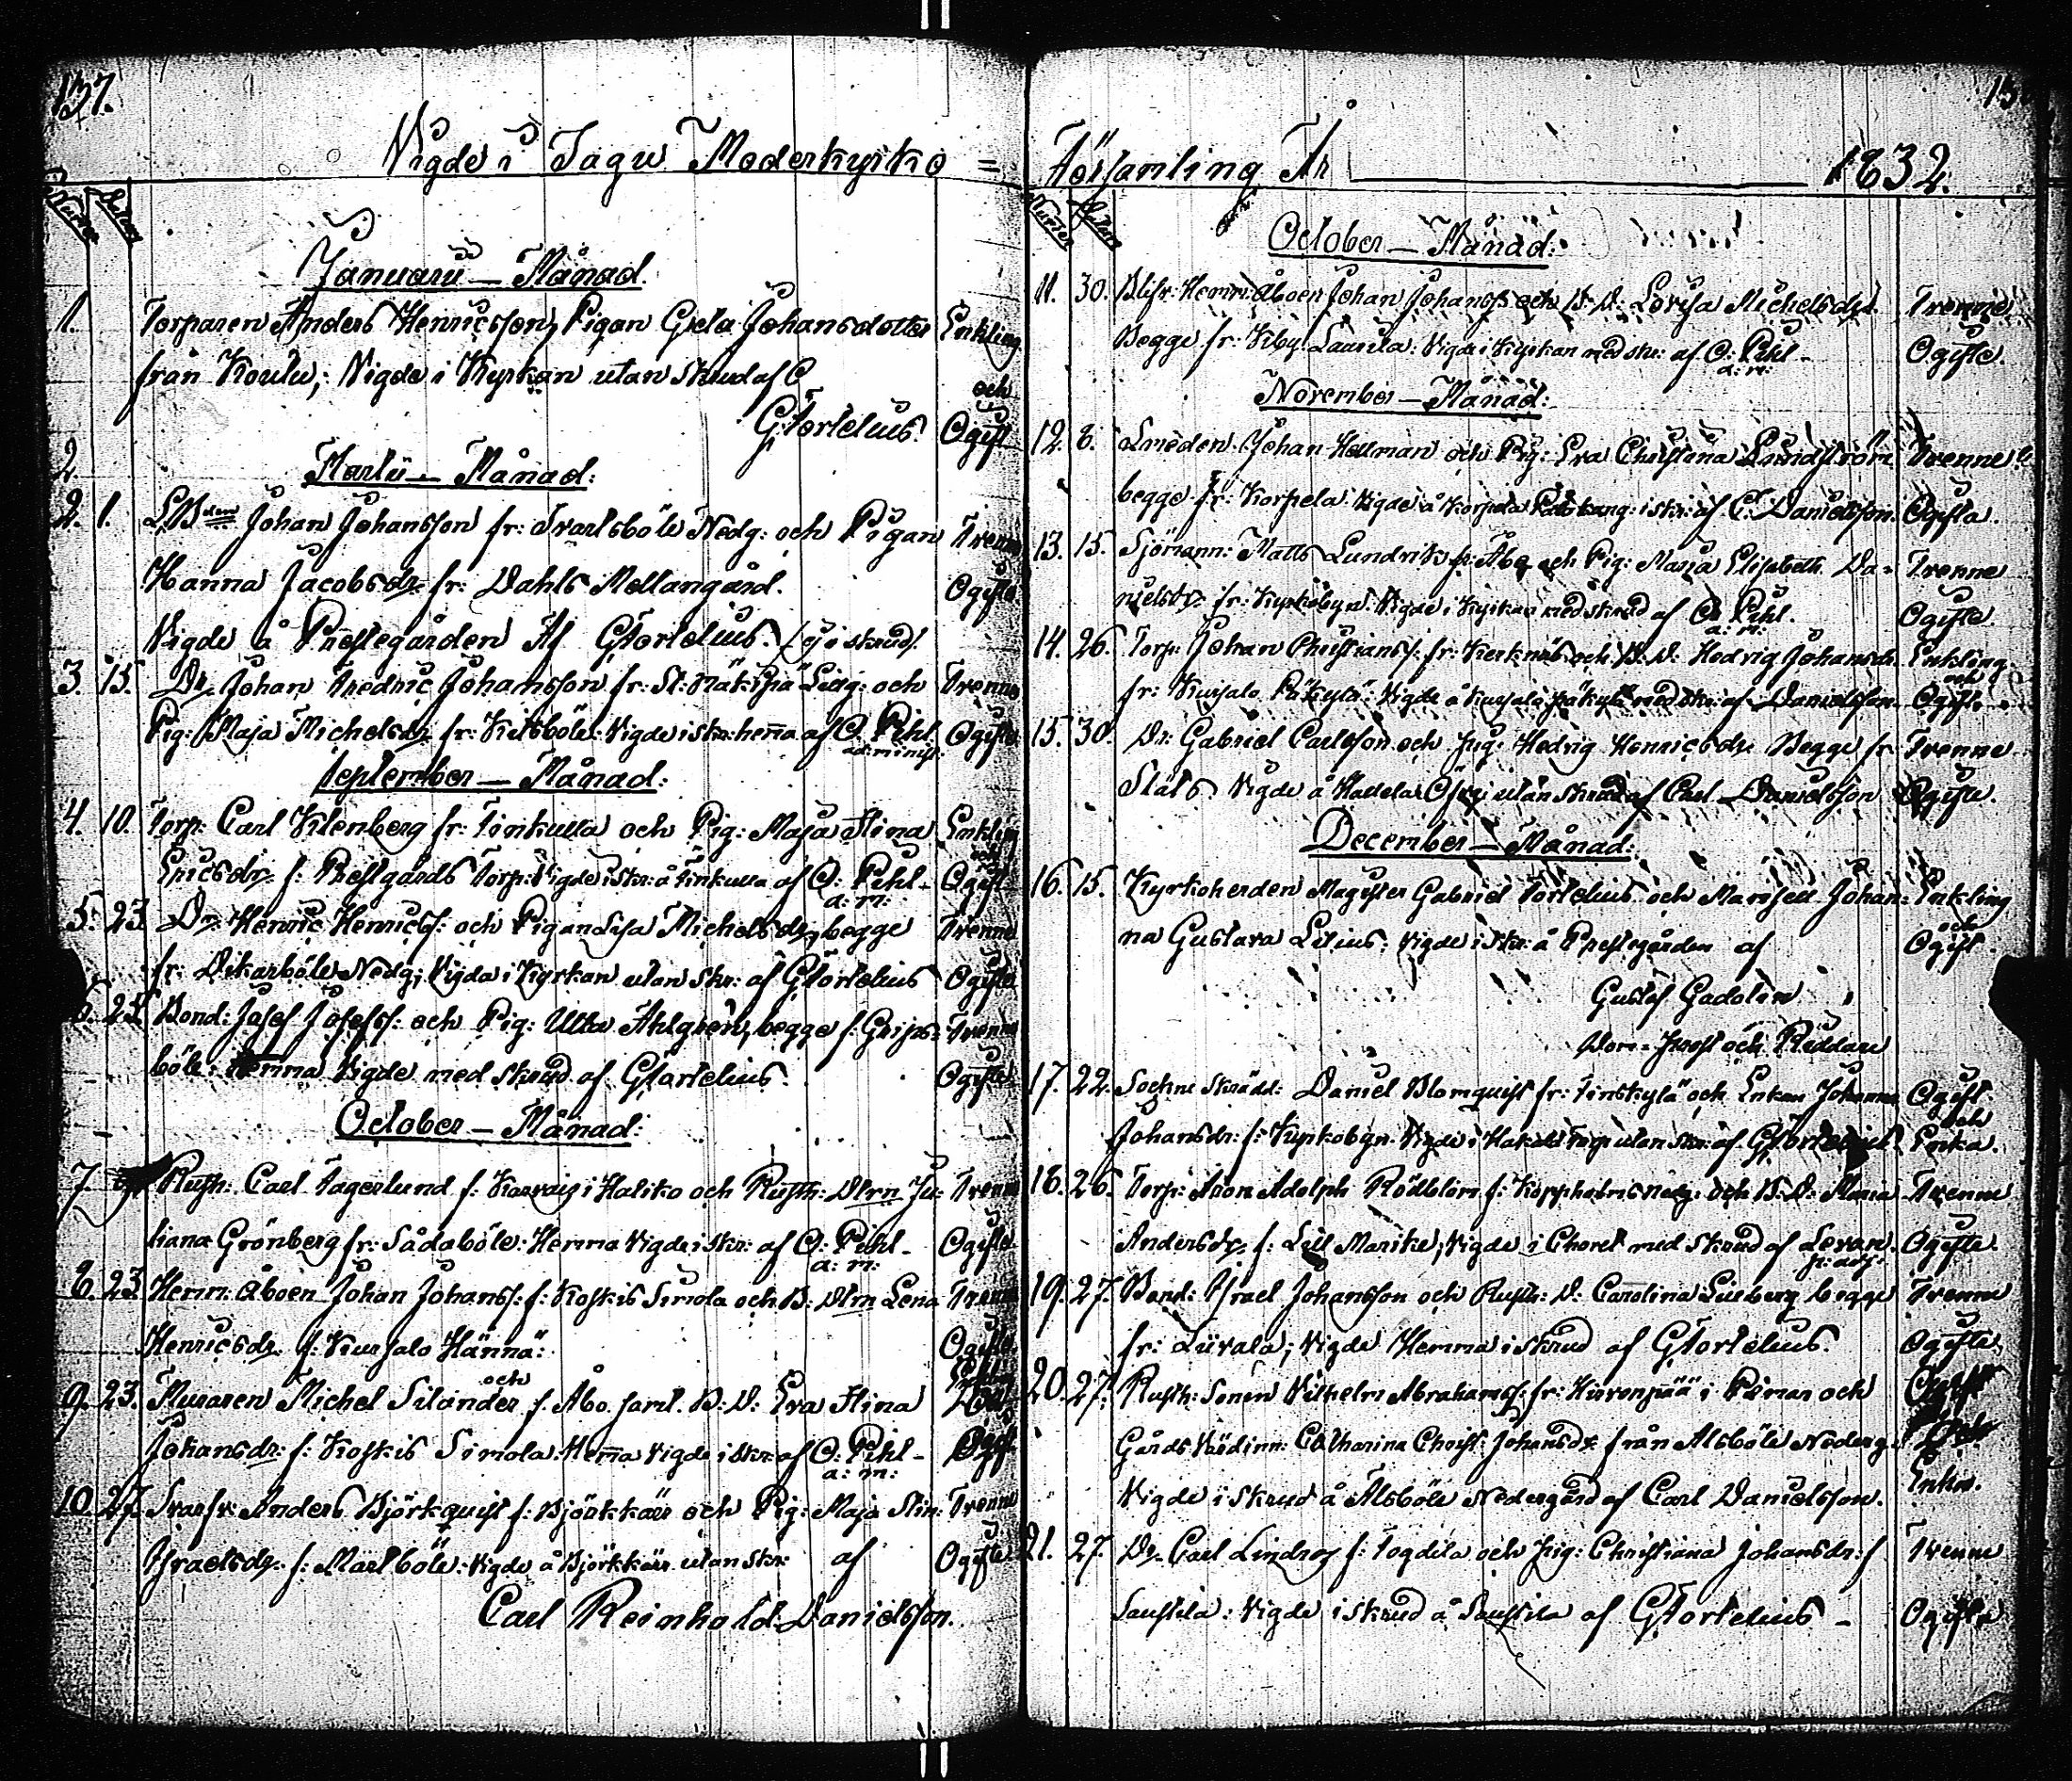 137.
Vigde i Sagu Moderkyrko =
Januarii - Månad.
1. Torparen Anders Henricsson, Pigan Greta Johansdotter Enkling
från Koulu; Vigde i Kyrkan utan skrud af
och
GTortelius. Ogift
2
Martii - Månad:
2. 1. Johan Johansson fr: Svartsböle Nedg: och Pigan Trenne
Hanna Jacobsdr fr: Dahls Mellangård. Ogifte
Vigde å Prestegården Af GTortelius. (ej i skrud).
3. 15. Dr. Johan Fredric Johansson fr: och Trenne
Pig: Maja Michelsdr fr: Kilsböle: Vigde i skr: hema af O: Pihl Ogifte
September - Månad:
4. 10. Torp: Carl Klenberg fr: Finkulla och Pig: Maja Stina Enkling
och
Ericsdr f: Prestgårds Torp: Vigde i skr: å Finkulla af O: Pihl - Ogift
a: m:
5. 23. Dr. Henric Henricss: och Pigan Lisa Michelsdr, begge Trenne
fr: Oskarböle Nedg; Vigda i Kyrkan utan skr: af GTortelius Ogifte
6. 25. Bond: Josef Josefss: och Pig: Ulla Ahlgren, begge f: Grips= Trenne
böle: Hemma Vigde med skrud af GTortelius. Ogifte
October - Månad:
7. Rusth: Carl Fagerlund f: i Haliko och Rusth: Dtrn Ju= Trenne
liana Grönberg fr: Sådaböle: Hemma Vigde i skr: af O: Pihl - Ogifte
a: m:
8. 23. Hemm: åboen Johan Johanss: f: Koskis Simola och B: Dtrn Lena Trenne
Henricsdr. f: Kursalo Hännä: Ogifte
och
9. 23. Muraren Michel Silander f. Åbo saml. B: D: Eva Stina
Johansdr: f: Koskis Simola: Hema Vigde i skr: af O: Pihl - Ogift
a: m:
10. 27. Anders Björkquist f: Björkkärr och Pig: Maja Stin: Trenne
Israelsdr. f: Märtböle: Vigde å Björkkärr utan skr: af Ogifte
Carl Reinhold Danielsson.
Församling År 1832.
October - Månad:
11. 30. Hemm: åboen Johan Johanss och B: D: Lovisa Michelsdr Trenne
Begge fr: Laurila: Vigde i Kyrkan med skr: af O: Pihl - Ogifte.
a: m:
November - Månad:
12. 8. Smeden Johan Hellman och Pig: Eva Christina Lundström Trenne
begge fr: Korpela Vigde å Korpela i skr: af C: Danielsson. Ogifta.
13. 15. Sjömann: Matts Lundvik fr: Åbo och Pig: Maria Elisabeth Da= Trenne
nielsdr fr: Kyrkobyn: Vigde i Kyrkan med skrud af O: Pihl. Ogifte.
a: m:
14. 26. Torp: Johan Christianss: fr: och B: D: Hedvig Johansdr. Enkling
och
fr: Kursalo Päkylä: Vigde å Kursalo Päkylä med skr: af Danielsson Ogift.
15. 30. Dr: Gabriel Carlsson och Pig: Hedvig Henricsdr Begge fr Trenne
Ståls. Vigde å utan skrud af Carl Danielsson Ogifte.
December - Månad:
16. 15. Kyrkoherden Magister Gabriel Tortelius och Mamsell Johan= Enkling
och
na Gustava Lilius; Vigde i skr: å Prestegården af Ogift.
Gustaf Gadolin
Dom-Prost och Riddare
17. 22. Sockne skrädd: Daniel Blomquist fr: Finskylä och Enkan Johanna Ogift
och
Johansdr: f: Kyrkobyn Vigde i utan skr: af GTortelius Enka.
18. 26. Torp: Aron Adolph Rödblom f: Koppholms Nedg: och B: D: Maria Trenne
Andersdr f: Lill Marike; Vigde i Choret med skrud af Levan. Ogifte.
19. 27. Bond: Israel Johansson och Rusth: D: Carolina Lueberg begge Trenne
fr: Liivala; Vigde Hemma i skrud af GTortelius. Ogifte.
20. 27. Rusth: Sonen Vilhelm Abrahamss: fr: Hirvenpää i Pemar och
Gårds Vädinn: Catharina Christ: Johansdr från Alsböle Nederg: och
Vigde i skrud å Alsböle Nedergård af Carl Danielsson. Enka.
21. 27. Dr. Carl Lindroz f: Togdila och Pig: Christiana Johansdr: f Trenne
Saustila: Vigde i skrud å Saustila af GTortelius - Ogifte